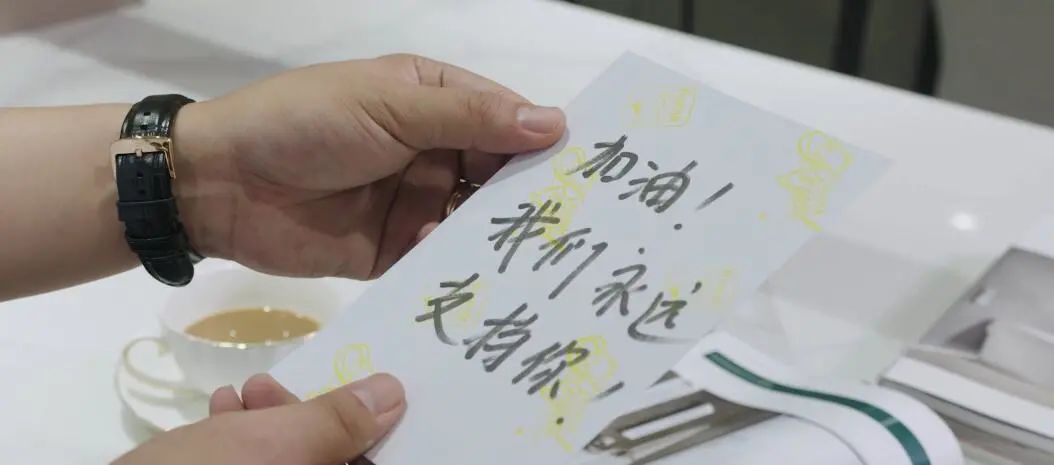 加油！
我们永远
支持你！